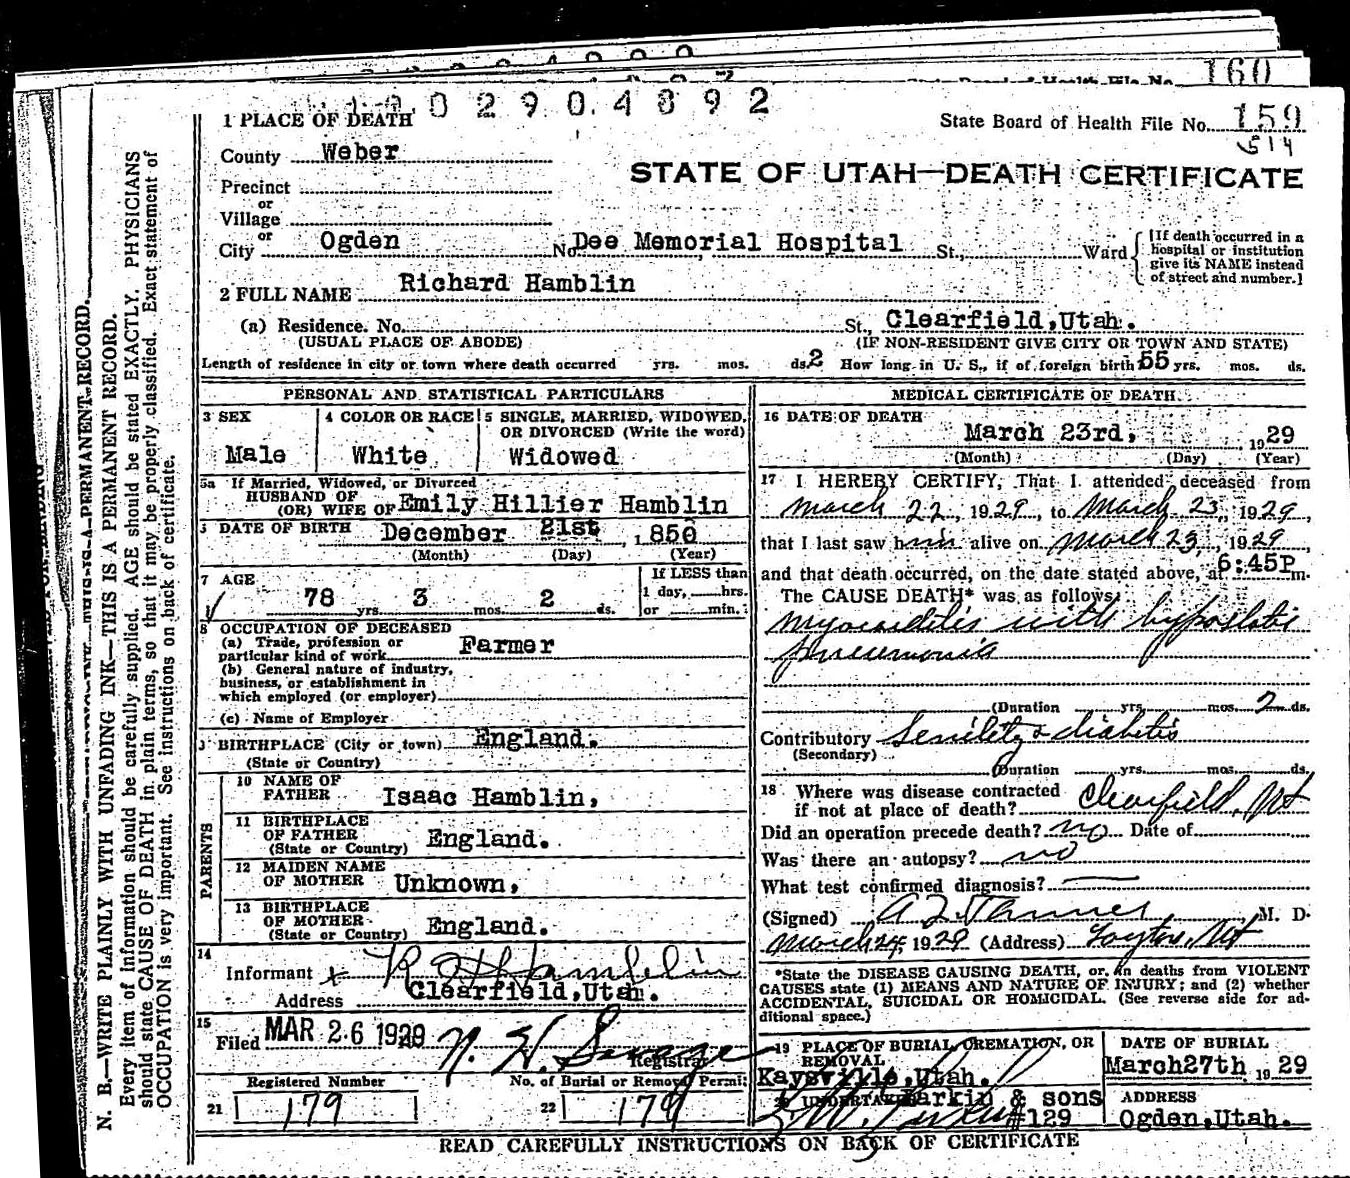 160
2 9 0 4 8 9 2
1 PLACE OF DEATH
State Board of Health File No. 159
514
County Weber
STATE OF UTAH—DEATH CERTIFICATE
Precinct
or
Village
or
City Ogden No. Dee Memorial Hospital St., Ward
[If death occurred in a
hospital or institution
give its NAME instead
of street and number.]
2 FULL NAME Richard Hamblin
(a) Residence. No. St., Clearfield, Utah.
(USUAL PLACE OF ABODE) (IF NON-RESIDENT GIVE CITY OR TOWN AND STATE)
Length of residence in city or town where death occurred yrs. mos. ds. 2 How long in U. S., if of foreign birth 55 yrs. mos. ds.
PERSONAL AND STATISTICAL PARTICULARS
3 SEX
Male
4 COLOR OR RACE
White
5 SINGLE, MARRIED, WIDOWED,
OR DIVORCED (Write the word)
Widowed
5a If Married, Widowed, or Divorced
HUSBAND OF
(OR) WIFE OF Emily Hillier Hamblin
DATE OF BIRTH December 21st, 1850
(Month) (Day) (Year)
7 AGE
78 yrs. 3 mos. 2 ds.
If LESS than
1 day, hrs.
or min.
8 OCCUPATION OF DECEASED
(a) Trade, profession or
particular kind of work Farmer
(b) General nature of industry,
business, or establishment in
which employed (or employer)
(c) Name of Employer
BIRTHPLACE (City or town) England.
(State or Country)
PARENTS
10 NAME OF
FATHER Isaac Hamblin,
11 BIRTHPLACE
OF FATHER England.
(State or Country)
12 MAIDEN NAME
OF MOTHER Unknown,
13 BIRTHPLACE
OF MOTHER England.
(State or Country)
14
Informant x R H Hamblin
Address Clearfield, Utah.
15
Filed MAR 26 1929
Registrar
Registered Number
21 179
No. of Burial or Removal Permit
22 179
MEDICAL CERTIFICATE OF DEATH
16 DATE OF DEATH
March 23rd, 1929
(Month) (Day) (Year)
17 I HEREBY CERTIFY, That I attended deceased from
March 22, 1929, to March 23, 1929,
that I last saw him alive on March 23, 1929,
and that death occurred, on the date stated above, at 6:45P m.
The CAUSE DEATH* was as follows:
Myocarditis with hypostatic
pneumonia
(Duration yrs. mos. 2 ds.
Contributory Senility & diabetis
(Secondary)
(Duration yrs. mos. ds.
18 Where was disease contracted
if not at place of death? Clearfield, Ut
Did an operation precede death? no Date of
Was there an autopsy? no
What test confirmed diagnosis?
(Signed) A Z Tanner M. D.
March 24, 1929 (Address) Layton, Ut
*State the DISEASE CAUSING DEATH, or, in deaths from VIOLENT
CAUSES state (1) MEANS AND NATURE OF INJURY; and (2) whether
ACCIDENTAL, SUICIDAL OR HOMICIDAL. (See reverse side for ad-
ditional space.)
19 PLACE OF BURIAL, CREMATION, OR
REMOVAL
Kaysville, Utah.
DATE OF BURIAL
March27th 1929
20 UNDERTAKER Larkin & sons
#129
ADDRESS
Ogden, Utah.
READ CAREFULLY INSTRUCTIONS ON BACK OF CERTIFICATE
N. B.—WRITE PLAINLY WITH UNFADING INK—THIS IS A PERMANENT RECORD.
Every item of information should be carefully supplied. AGE should be stated EXACTLY. PHYSICIANS
should state CAUSE OF DEATH in plain terms, so that it may be properly classified. Exact statement of
OCCUPATION is very important. See instructions on back of certificate.